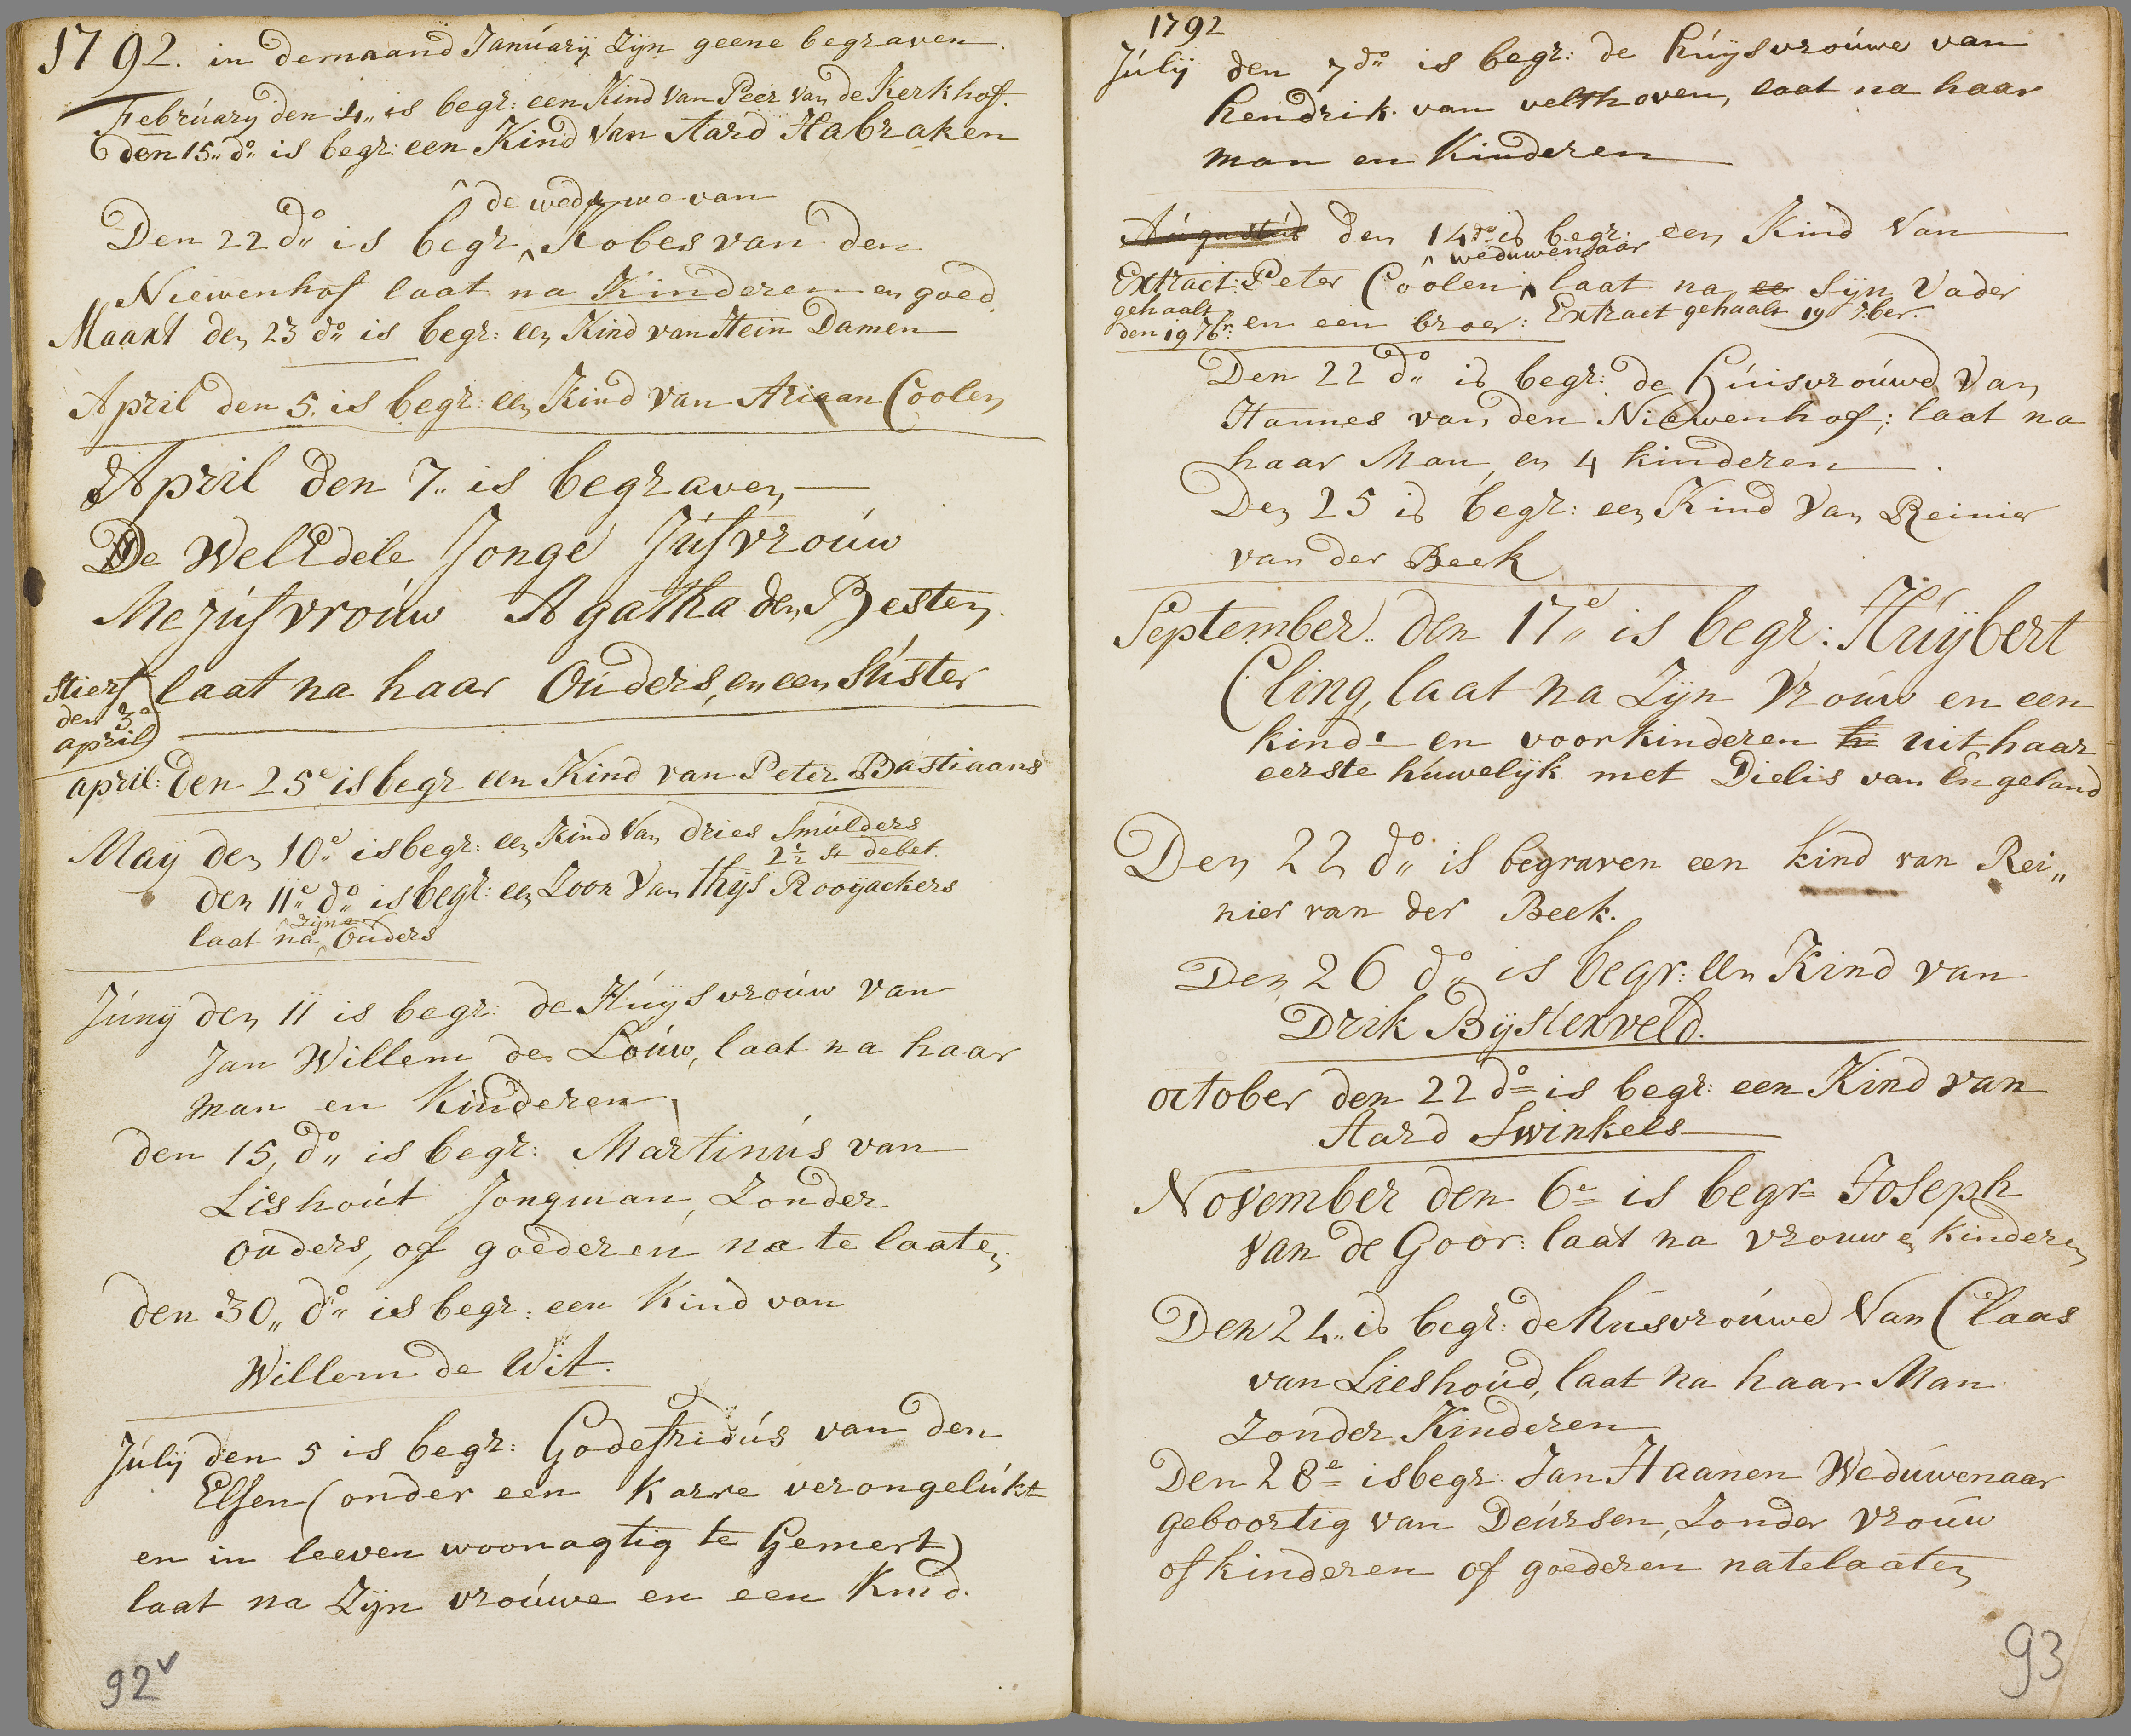 1792. in de maand Januarij Zijn geene begraven.
February den 4„ is begr: een Kind Van Peer Van de Kerkhof.
den 15„ do is begr: een Kind Van Aard Habraken
de weduwe van
Den 22 do is begr Kobes van den
Niewenhof laat na Kinderen en goed
Maart den 23 do is begr: een Kind van Hein Damen
April den 5. is begr: een Kind van Ariaan Coolen
April den 7„ is begraven
De WelEdele Jonge Jufvrouw
Mejufvrouw Agatha den Besten.
laat na haar Ouders, en een Suster
stierf
den 3e
april
april: den 25e is begr een Kind van Peter Bastiaans
Maij den 10e is begr: een Kind Van dries Smulders
2½ st debet
den 11e do is begr: een Zoon Van thijs Rooijackers
Zijne
laat na Ouders
Junij den 11 is begr: de Huijsvrouw van
Jan Willem de Louw, laat na haar
man en Kinderen
den 15, do is begr: Martinus van
Lieshout Jongman, Zonder
ouders, of goederen na te laaten
den 30„ do is begr: een Kind van
Willem de Wit.
Julij den 5 is begr: Godefridus van den
Elsen (onder een Karre verongelukt
en in leeven woonagtig te Gemert)
laat na Zijn vrouwe en een Kind.
92v
1792
Julij den 7do is begr: de huijsvrouwe van
hendrik van velthoven, laat na haar
man en Kinderen
Augustus den 14do is begr: een Kind Van
weduwenaar
Extract: Peter Coolen laat na ee Sijn Vader
gehaalt
den 19 7br: en een broer: Extract gehaalt 19 7ber.
Den 22 do is begr: de Huisvrouwe Van
Hannes van den Niewenhof; laat na
haar Man en 4 kinderen.
Den 25 is begr: een Kind Van Reinier
van der Beek
September. den 17e is begr: Huijbert
Cling, laat na Zijn Vrouw en een
kind en voorkinderen h uit haar
eerste huwelijk met Dielis van Engeland
Den 22 do is begraven een kind van Rei„
nier van der Beek.
Den 26 do is begr: een Kind van
Drik Bijsterveld.
october den 22 do is begr: een Kind van
Aard Swinkels
November den 6e is begr= Joseph
Van de Goor: laat na vrouw en Kinderen
Den 24„ is begr: de husvrouwe Van Claas
van Lieshoud, laat na haar Man
Zonder Kinderen
Den 28e is begr: Jan Haanen Weduwenaar
geboortig van Deursen, Zonder Vrouw
of kinderen of goederen natelaaten
93